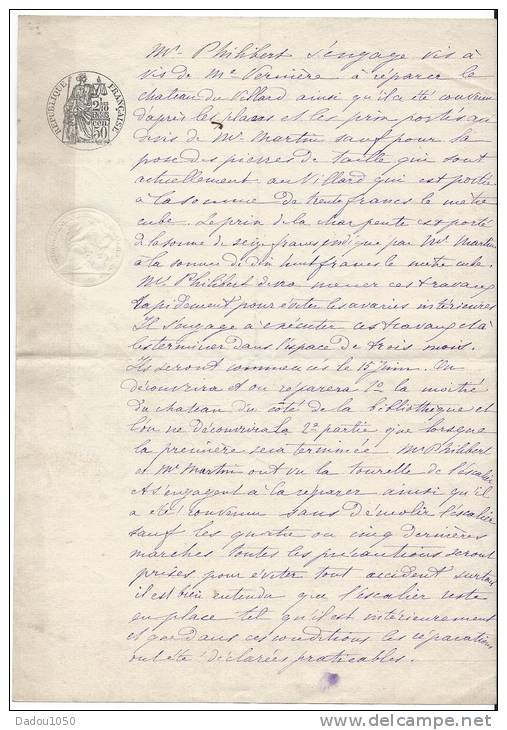 Mr Philibert s'engage vis à
vis de Me Vernière à réparer le
chateau du Villard ainsi qu'il a été convenu
d'après les plans et les prix portés au
devis de Mr Martin sauf pour la
pose des pierres de taille qui sont
actuellement au Villard qui est portée
à la somme de trente francs le mètre
cube. Le prix de la charpente est porté
à la somme de seize francs indiqué par Mr Martin
à la somme de dix huit francs le mètre cube
Mr Philibert devra mener ces travaux
rapidement pour éviter les avaries intérieures
Il s'engage à exécuter ces travaux et à
les terminer dans l'espace de trois mois.
Ils seront commencés le 15 juin. On
découvrira et on réparera 1o la moitié
du chateau du côté de la bibliothèque et
l'on ne découvrira la 2e partie que lorsque
la première sera terminée Mr Philibert
et Mr Martin ont vu la tourelle de l'escalier
et s'engagent à la réparer ainsi qu'il
a été convenu sans démolir l'escalier
sauf les quatre ou cinq dernières
marches toutes les précautions seront
prises pour éviter tout accident surtout
il est bien entendu que l'escalier reste
en place tel qu'il est intérieurement
et que dans ces conditions les réparations
ont été déclarées praticables.
RÉPUBLIQUE FRANÇAISE
50c
Dadou1050
delcampe.net